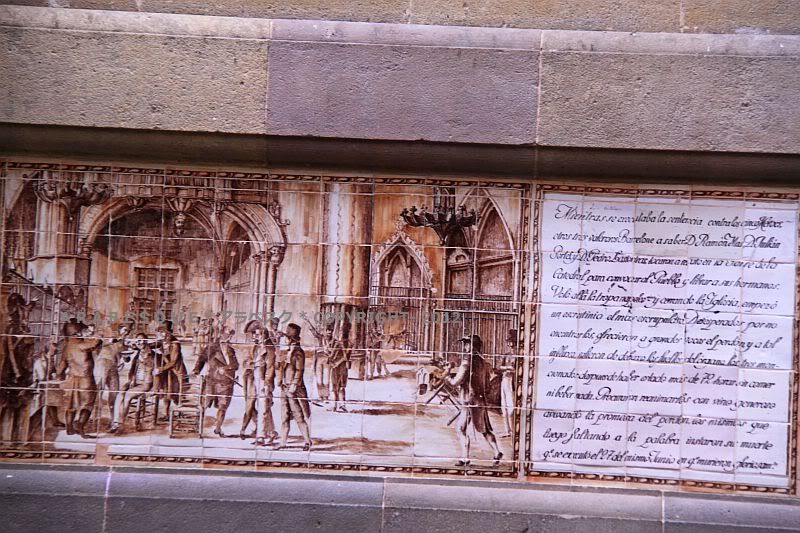 Mientras se executaba la sentencia contra los cinco Heroes,
otros tres valerosos Barcelone a saber D. Ramon Mas D. Julian
Portet y D. Pedro Lastortras tocaron a rebato en la torre de la
Catedral para convocar al Pueblo y librar a sus hermanos.
Voló allá la tropa napoleᵃ y cercando la Iglesia, empezó
un escrutinio el más escrupuloso Desesperados por no
encontrarlos ofrecieron a grandes voces el perdon y a tal
salieron de debaxo los fuelles del organo los tres
despues de haber estado mas de 72 horas sin comer
ni beber nada. Procuran reanimarlos con vino generoso
la promesa del perdon los mismos que
luego faltando a la palabra instaron su muerte
qᵉ se executó el 27 del mismo Junio en qᵉ murieron gloriosamᵗᵉ
COPYRIGHT